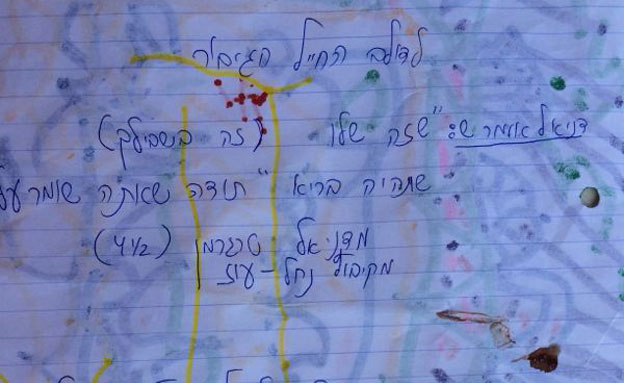 לדולב החייל הגיבור
דניאל אומר ש: "שזה שלו (זה בשבילך)
שתהיה בריא" תודה שאתה שומר על
מדניאל טרגרמן (4½)
מקיבוץ נחל-עוז